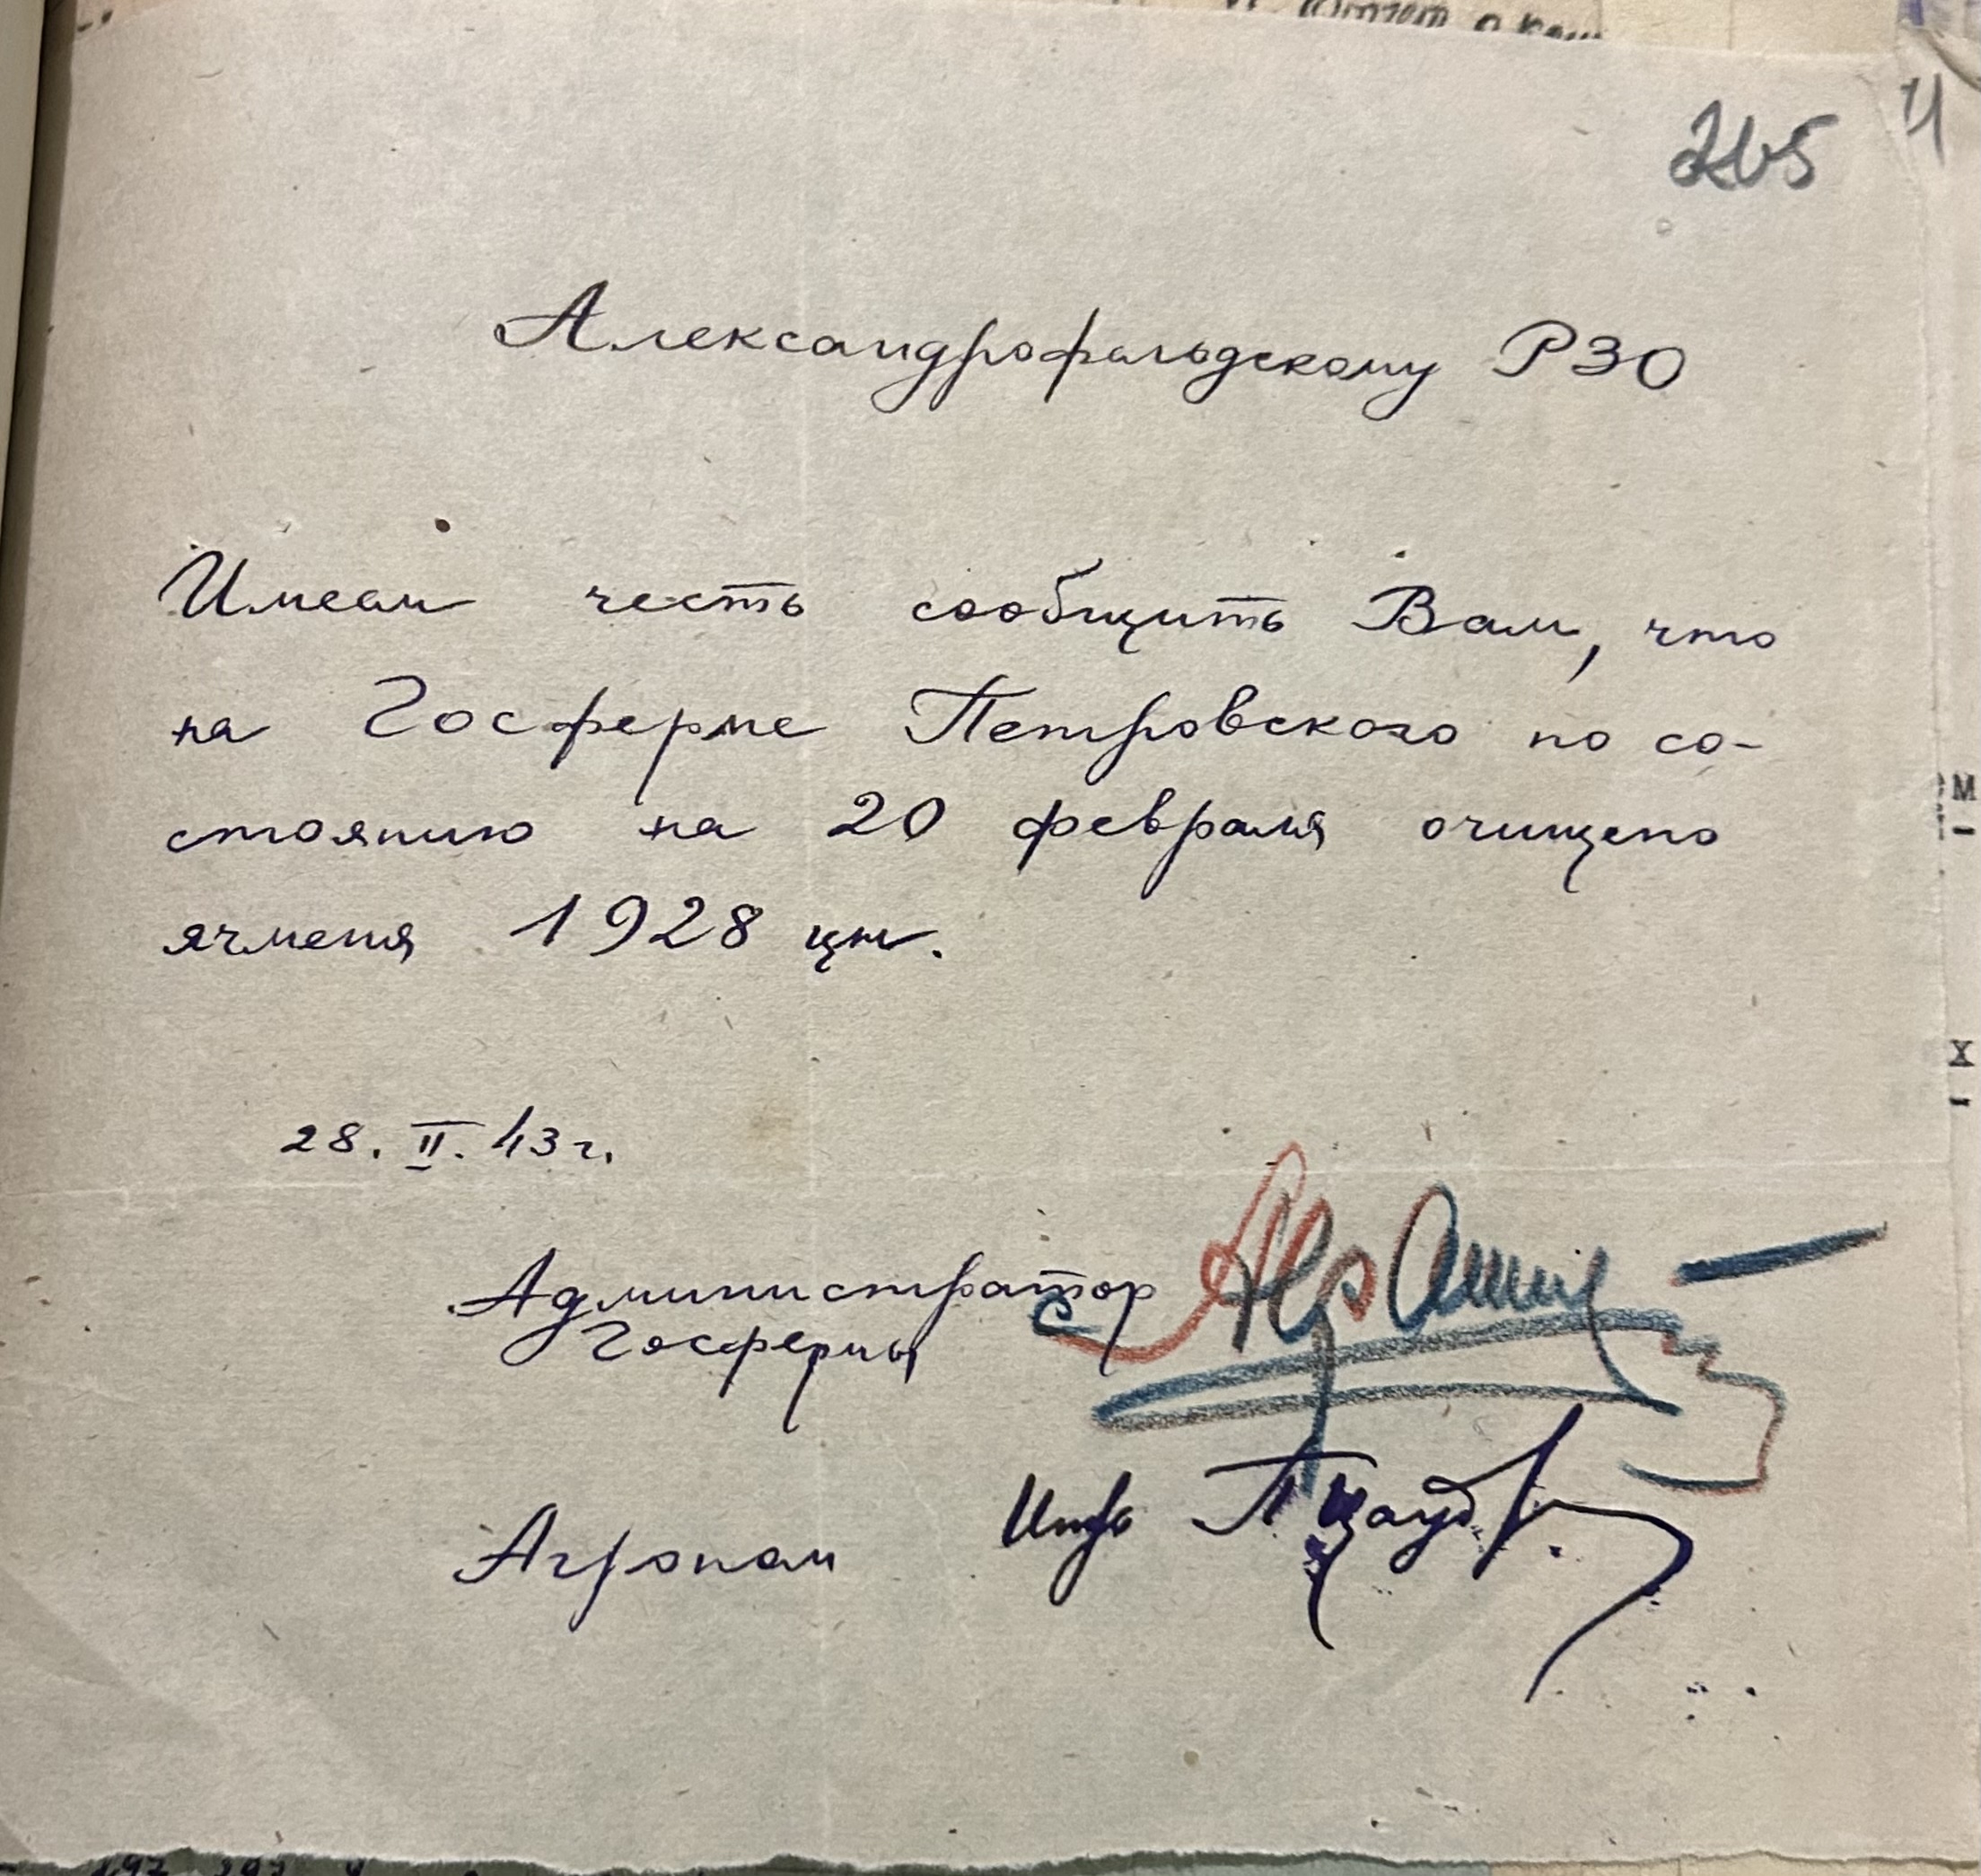 265
Александрофельдскому РЗО
Имеем честь сообщить Вам, что
на Госферме Петровского по со-
стоянию на 20 февраля очищено
ячменя 1928 цнт.
28. II. 43 г.
Администратор
Госфермы
Агроном